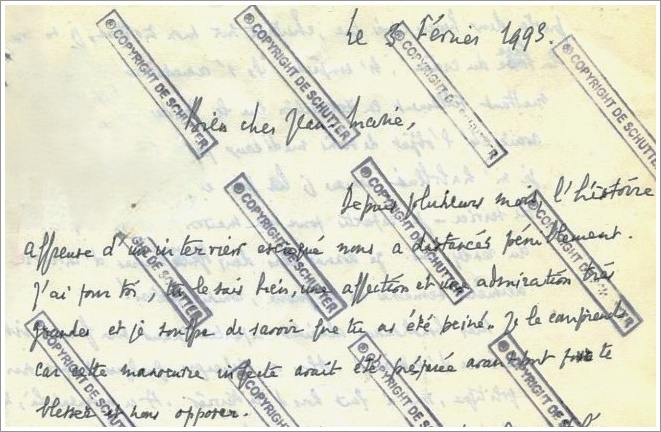 Le 3 Février 1993.
Bien cher Jean Marie,
Depuis plusieurs mois, l'histoire
affreuse d'un interview escroqué nous a distancés péniblement.
J'ai pour toi, tu le sais bien, une affection et une admiration très
grandes et je souffre de savoir que tu as été peiné. Je le comprends
car cette manoeuvre infecte avait été préparée avant tout pour te
blesser et nous opposer.
© COPYRIGHT DE SCHUTTER
© COPYRIGHT DE SCHUTTER
© COPYRIGHT DE SCHUTTER
© COPYRIGHT DE SCHUTTER
© COPYRIGHT DE SCHUTTER
© COPYRIGHT DE SCHUTTER